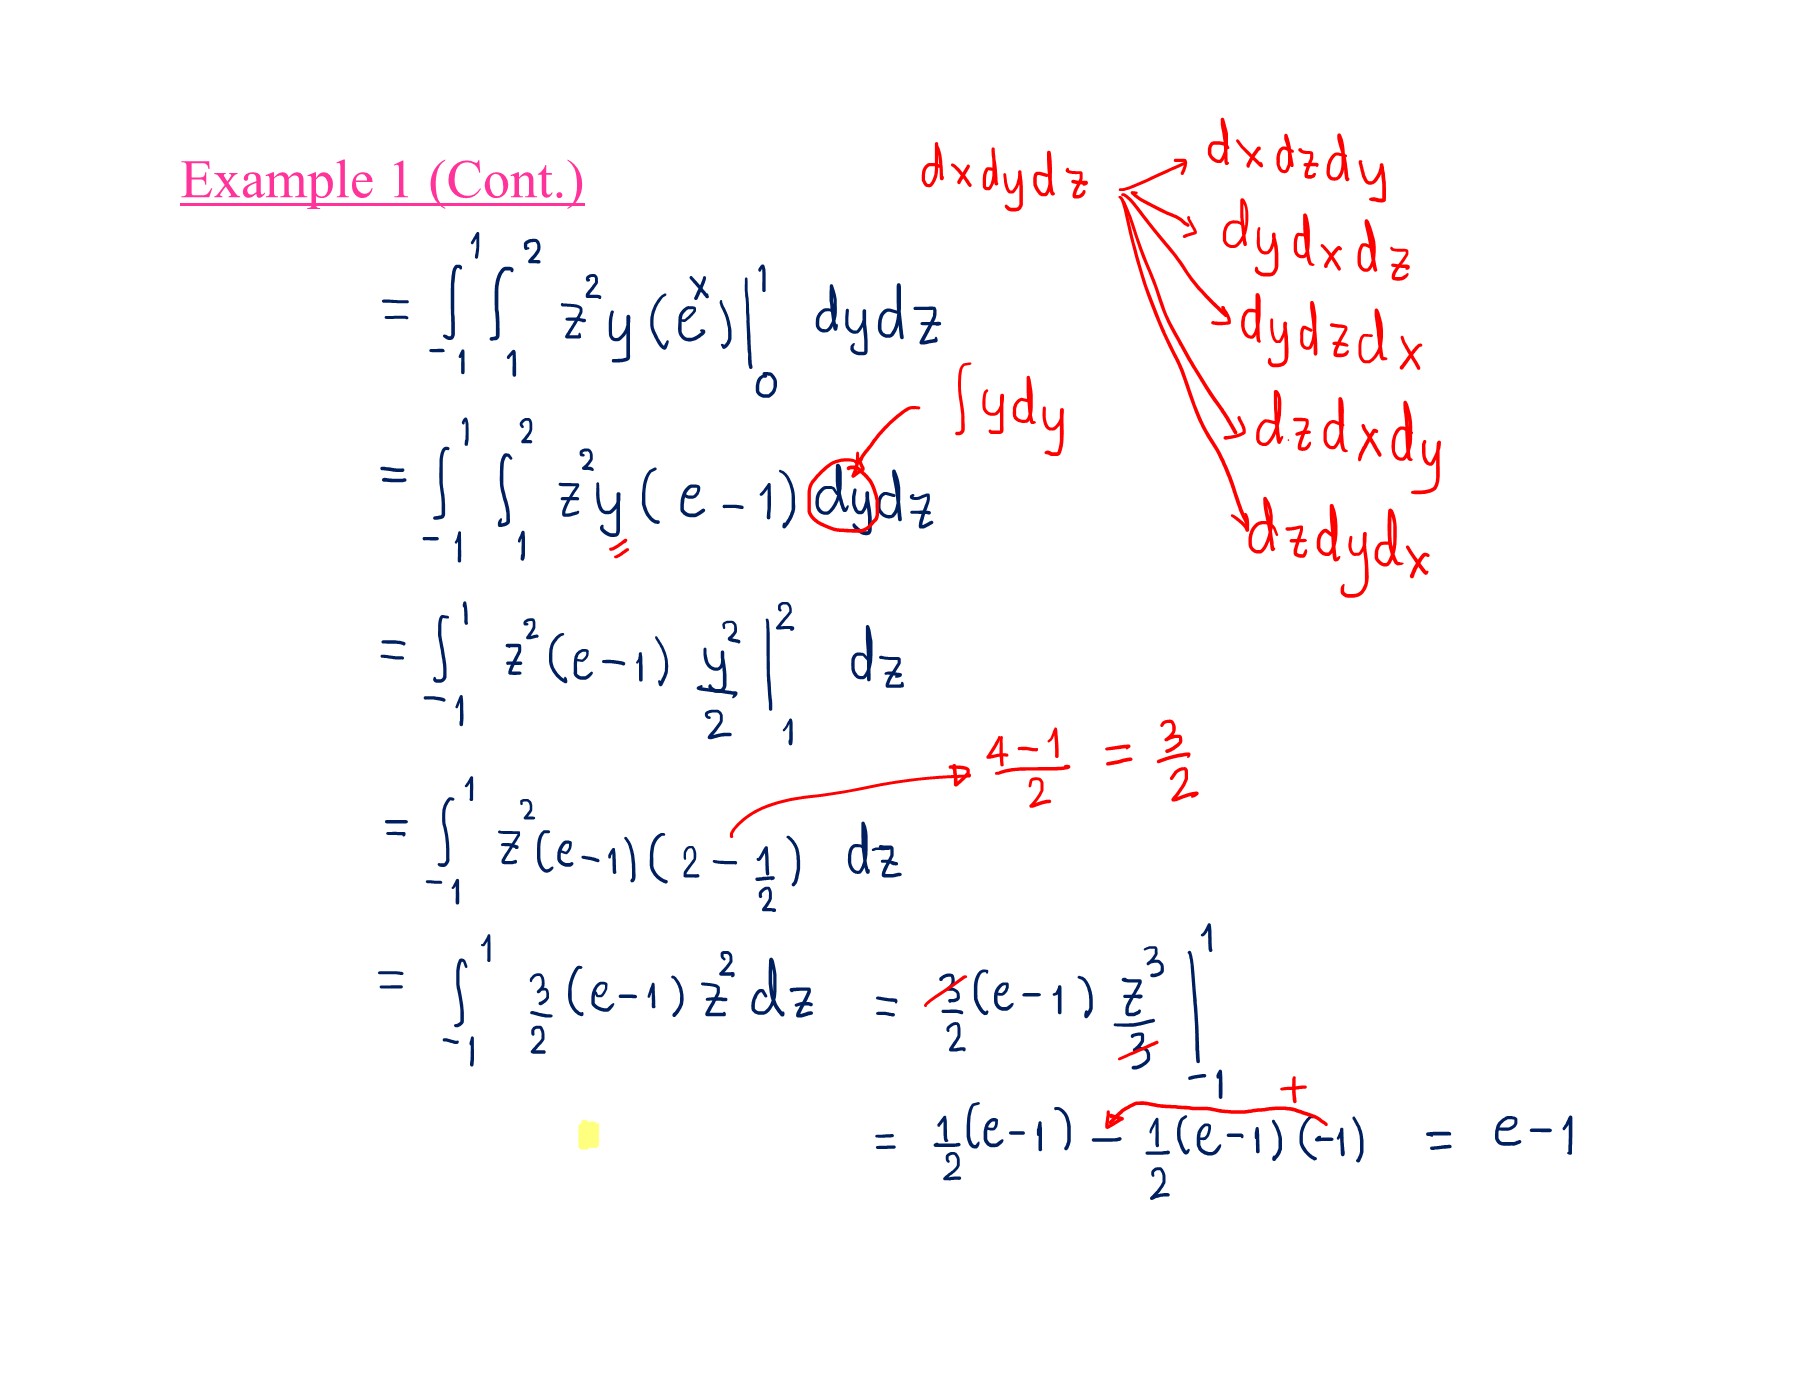 Example 1 (Cont.)
dxdydz
dxdzdy
dydxdz
dydzdx
dzdxdy
dzdydx
= ∫₋₁¹ ∫₁² z²y(eˣ)|₀¹ dydz
∫ydy
= ∫₋₁¹ ∫₁² z²y(e-1) dydz
= ∫₋₁¹ z²(e-1) y²/2 |₁² dz
= ∫₋₁¹ z²(e-1)(2-1/2) dz
4-1/2 = 3/2
= ∫₋₁¹ 3/2 (e-1) z² dz = 3/2 (e-1) z³/3 |₋₁¹
+
= 1/2 (e-1) - 1/2 (e-1)(-1) = e-1